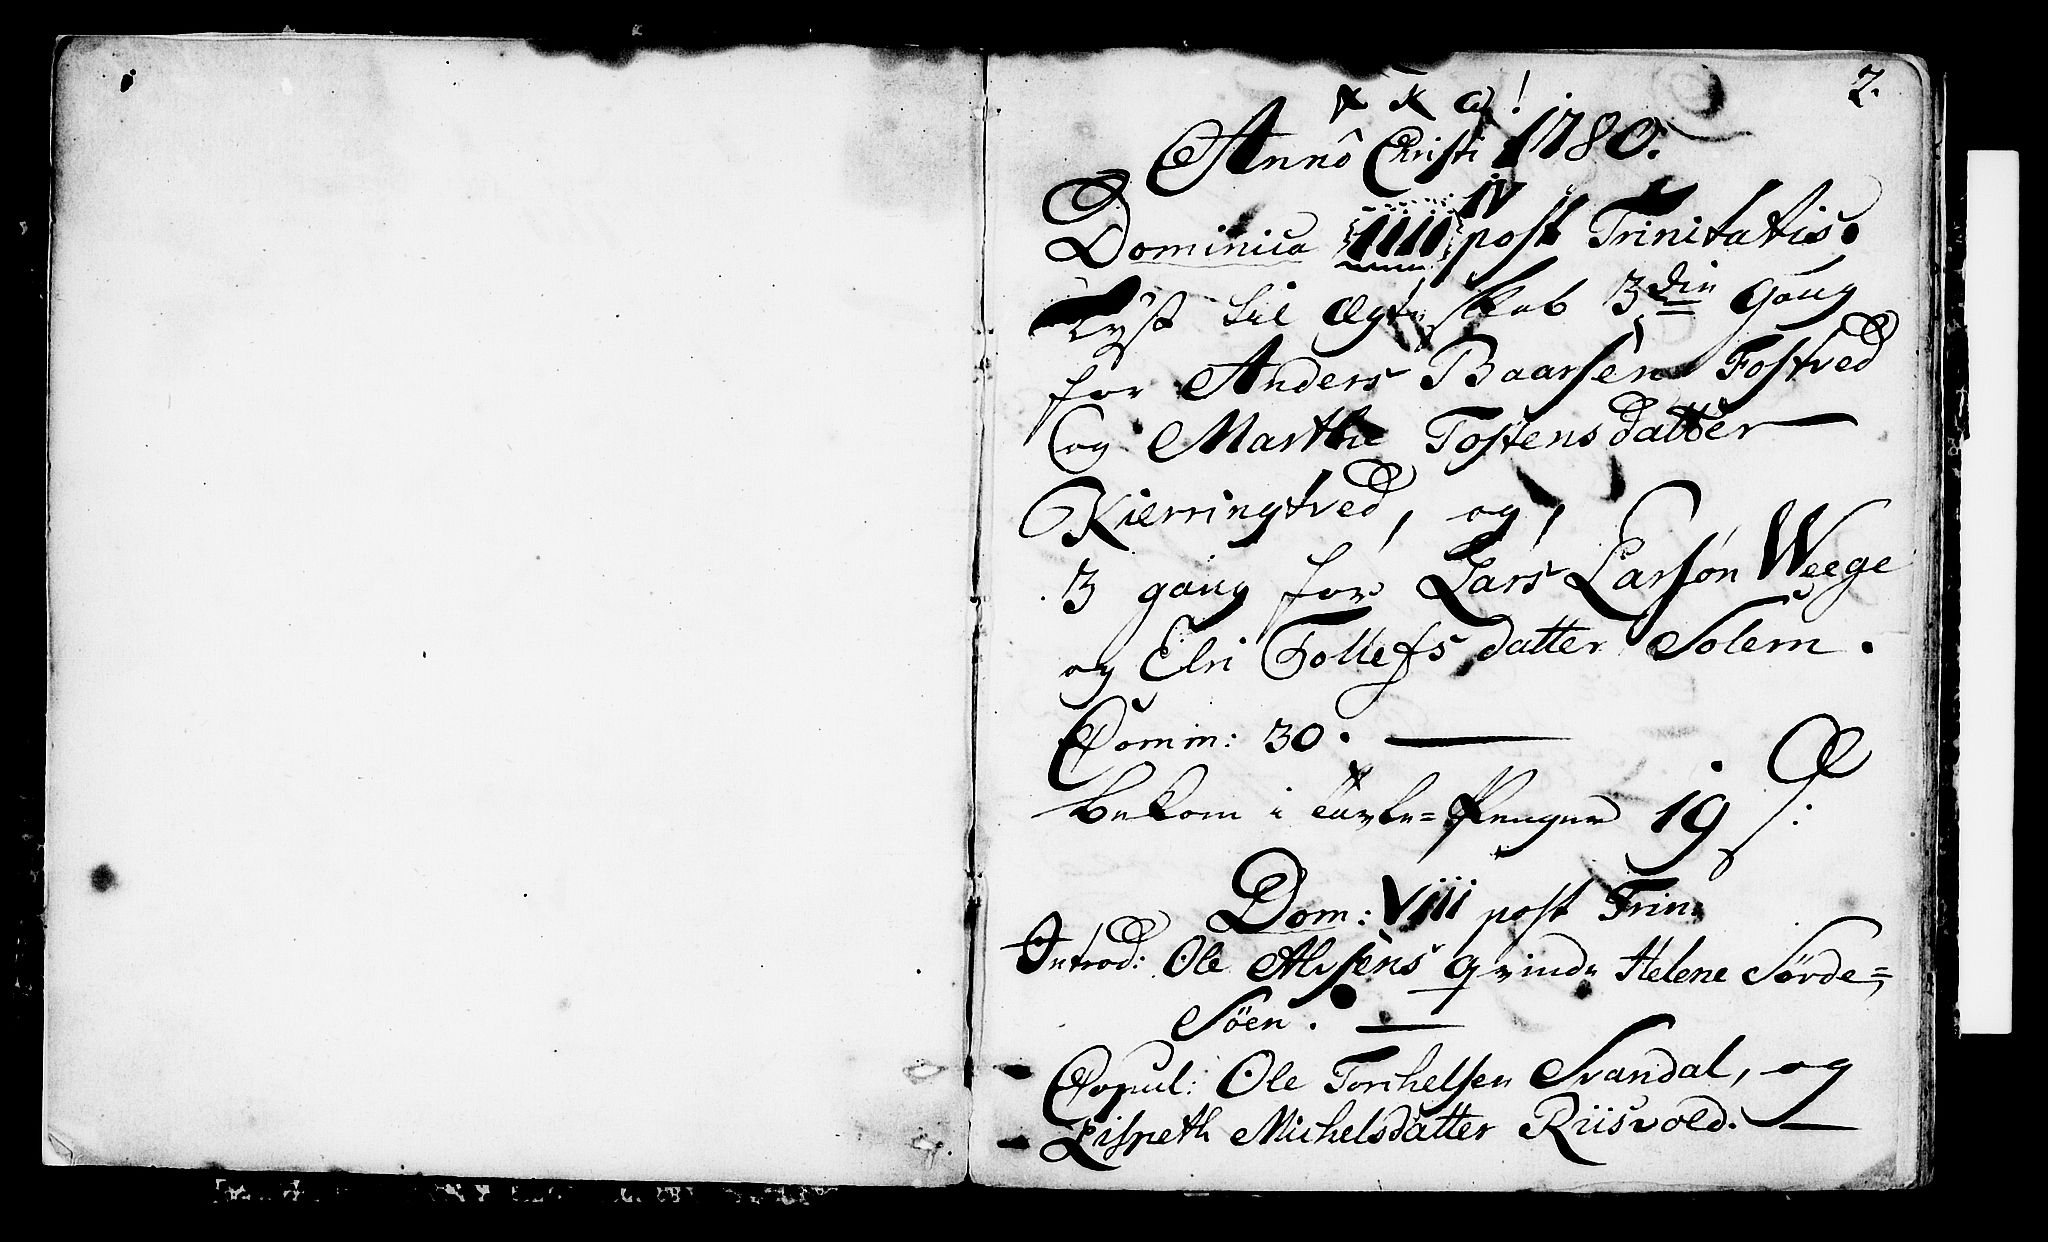 2.
Annô Christi 1780.
IV
Dominica IIII post Trinitatis.
Lyst til Ægteskab 3die gang
for Anders Baarsen Fostved
og Marthe Tostensdatter
Kierringtved, og,
3 gang for Lars Larsøn Weege
og Elri Tollefsdatter Solem.
Comm: 30.
bekom i Tavle=Penger 19 ß:
Dom: Viii post Trin:
Introd: Ole Alvsens qvinde Helene Sörde=
Söen.
Copul: Ole Torchelsen Svandal, og
Lisneth Michelsdatter Riisvold.